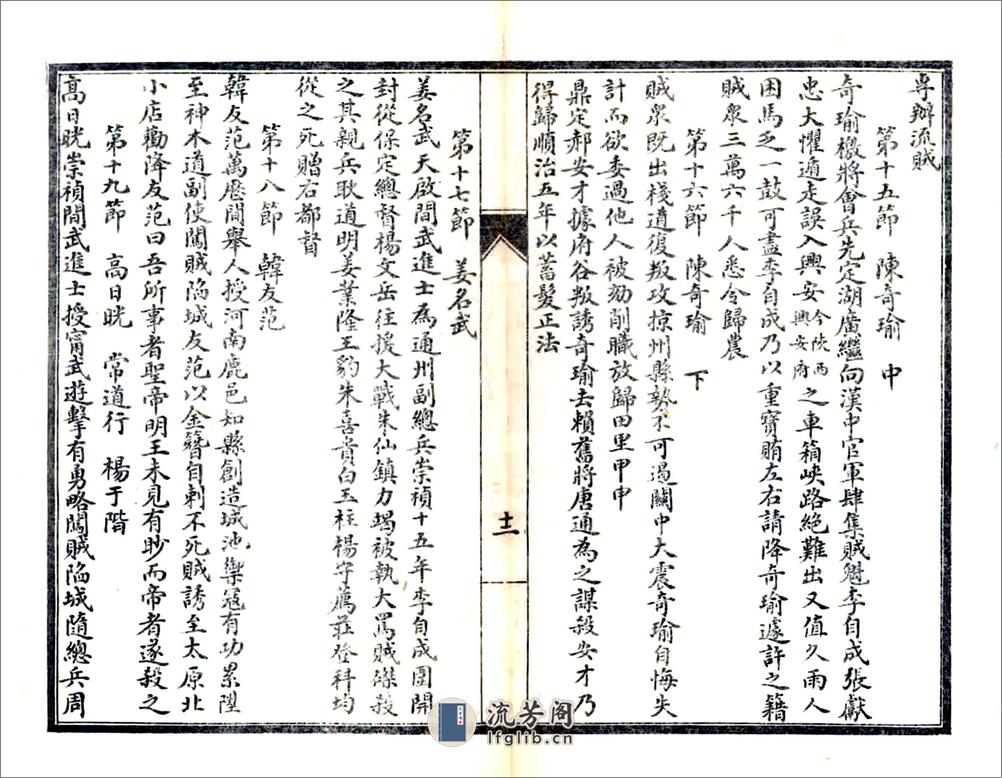 專辦流賊
第十五節 陳奇瑜 中
奇瑜檄將會兵先定湖廣繼向漢中官軍肆集賊魁李自成張獻
忠大懼遁走誤入興安今陝西興安府之車箱峽路絕難出又值久雨人
困馬乏一鼓可盡李自成乃以重寶賄左右請降奇瑜遽許之籍
賊眾三萬六千人悉令歸農
第十六節 陳奇瑜 下
賊眾既出棧道復叛攻掠州縣勢不可遏關中大震奇瑜自悔失
計而欲委過他人被劾削職放歸田里甲申
鼎定郝安才據府谷叛誘奇瑜去賴舊將唐通為之謀殺安才乃
得歸順治五年以蓄髮正法
十二
第十七節 姜名武
姜名武天啟間武進士為通州副總兵崇禎十五年李自成圍開
封從保定總督楊文岳往援大戰朱仙鎮力竭被執大罵賊磔殺
之其親兵耿道明姜業隆王豹朱喜貴白玉柱楊守薦莊登科均
從之死贈右都督
第十八節 韓友范
韓友范萬曆間舉人授河南鹿邑知縣創造城池禦寇有功累陞
至神木道副使闖賊陷城友范以金簪自刺不死賊誘至太原北
小店勸降友范曰吾所事者聖帝明王未見有眇而帝者遂殺之
第十九節 高日晄 常道行 楊于階
高日晄崇禎間武進士授甯武遊擊有勇略闖賊陷城隨總兵周
流芳阁
lfglib.cn